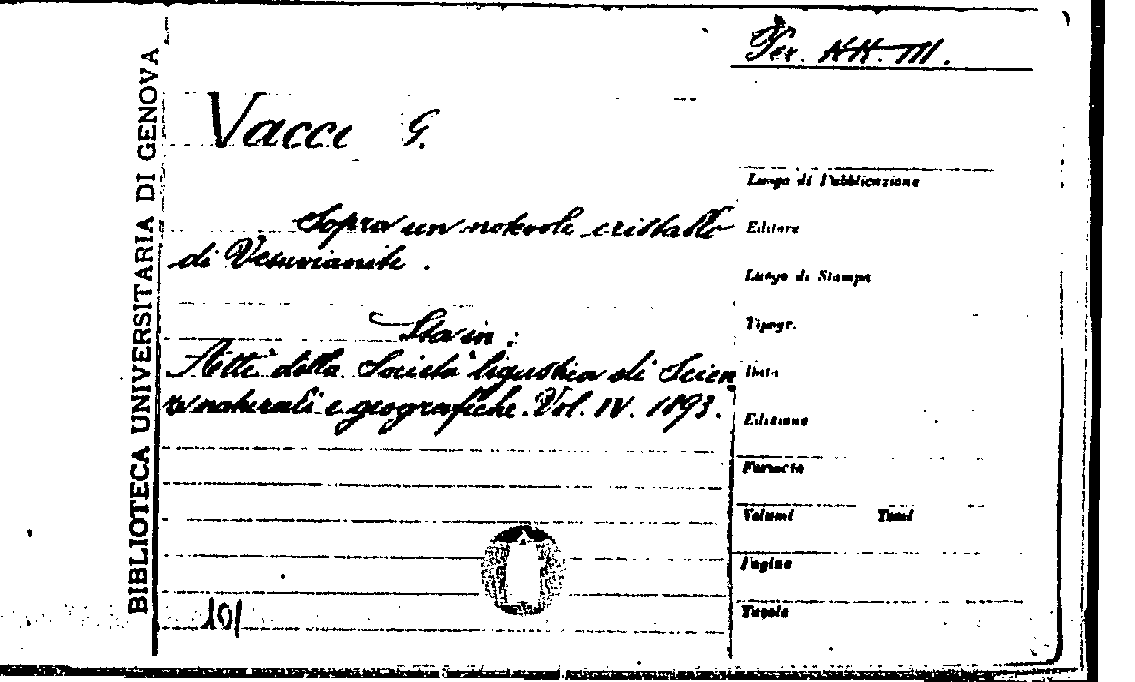 Per. HH. III.
BIBLIOTECA UNIVERSITARIA DI GENOVA
Vacci G.
Sopra un notevole cristallo
di Vesuvianite.
Sta in:
Atti della Società ligustica di Scien
ze naturali e geografiche. Vol. IV. 1893.
101
Luogo di Pubblicazione
Editore
Luogo di Stampa
Tipogr.
Data
Edizione
Formato
Volumi Tomi
Pagine
Tavole